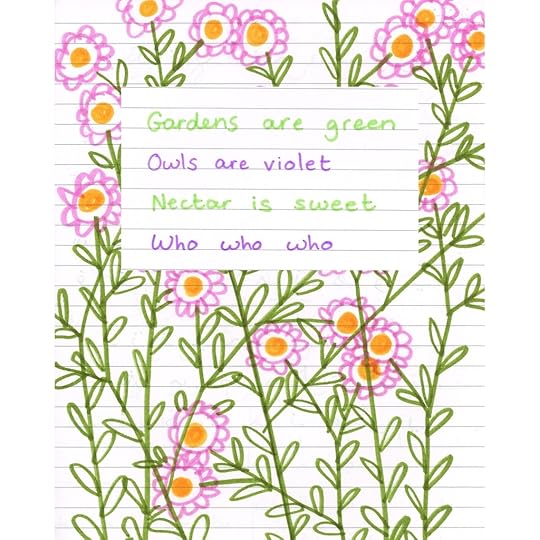 Gardens are green
Owls are violet
Nectar is sweet
Who who who